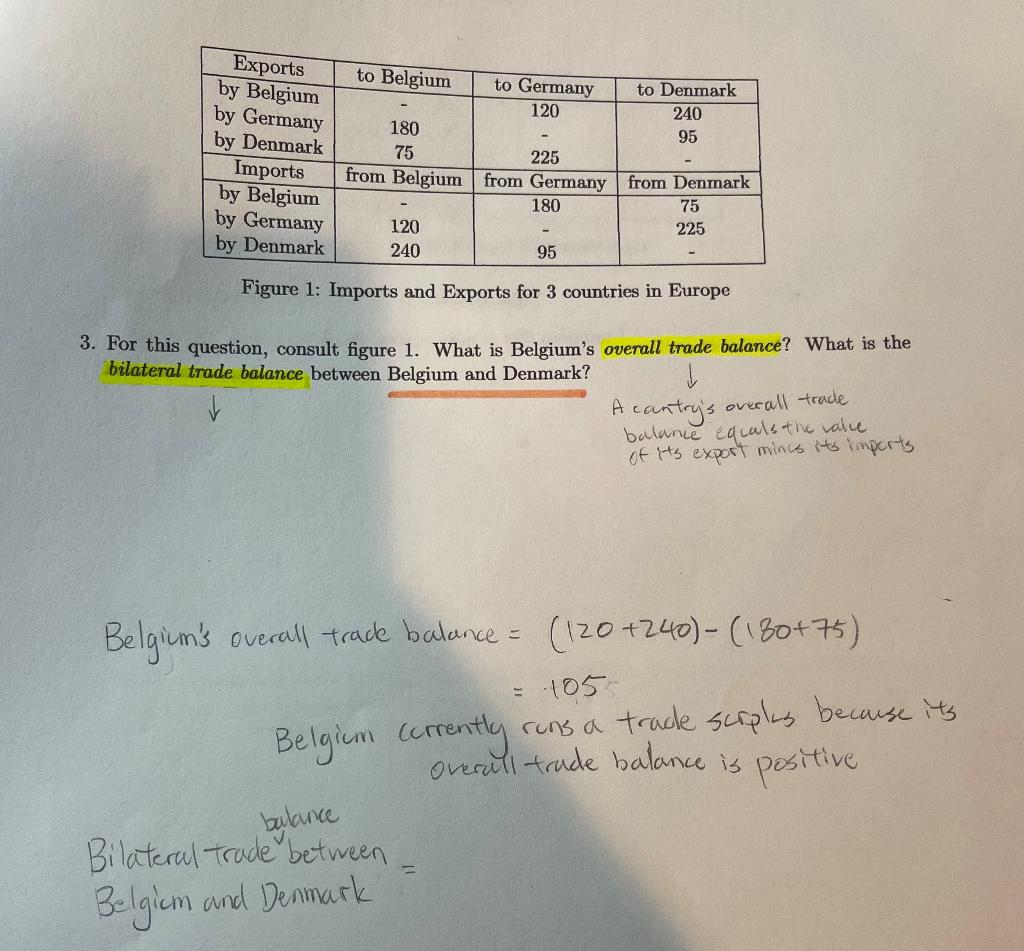 Exports to Belgium to Germany to Denmark
by Belgium - 120 240
by Germany 180 - 95
by Denmark 75 225 -
Imports from Belgium from Germany from Denmark
by Belgium - 180 75
by Germany 120 - 225
by Denmark 240 95 -
Figure 1: Imports and Exports for 3 countries in Europe
3. For this question, consult figure 1. What is Belgium's overall trade balance? What is the
bilateral trade balance between Belgium and Denmark?
↓ ↓
A cantry's overall trade
balance equals the value
of its export minus its imports
Belgium's overall trade balance = (120+240)-(180+75)
= 105
Belgium currently runs a trade surplus because its
overall trade balance is positive
balance
Bilateral trade ˅ between =
Belgium and Denmark